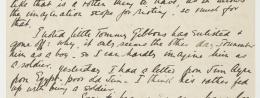 like that is a rotten thing to have, as it allows
the imagination scope for rioting. so much for
that.
I notice little Tommy Gibbons has enlisted &
gone off: why, it only seems the other day, I remember
him as a boy, so I can hardly imagine him as
a soldier.
Yesterday I had a letter from Jim
from Egypt. poor old I think he's rather fed
up with being a soldier.